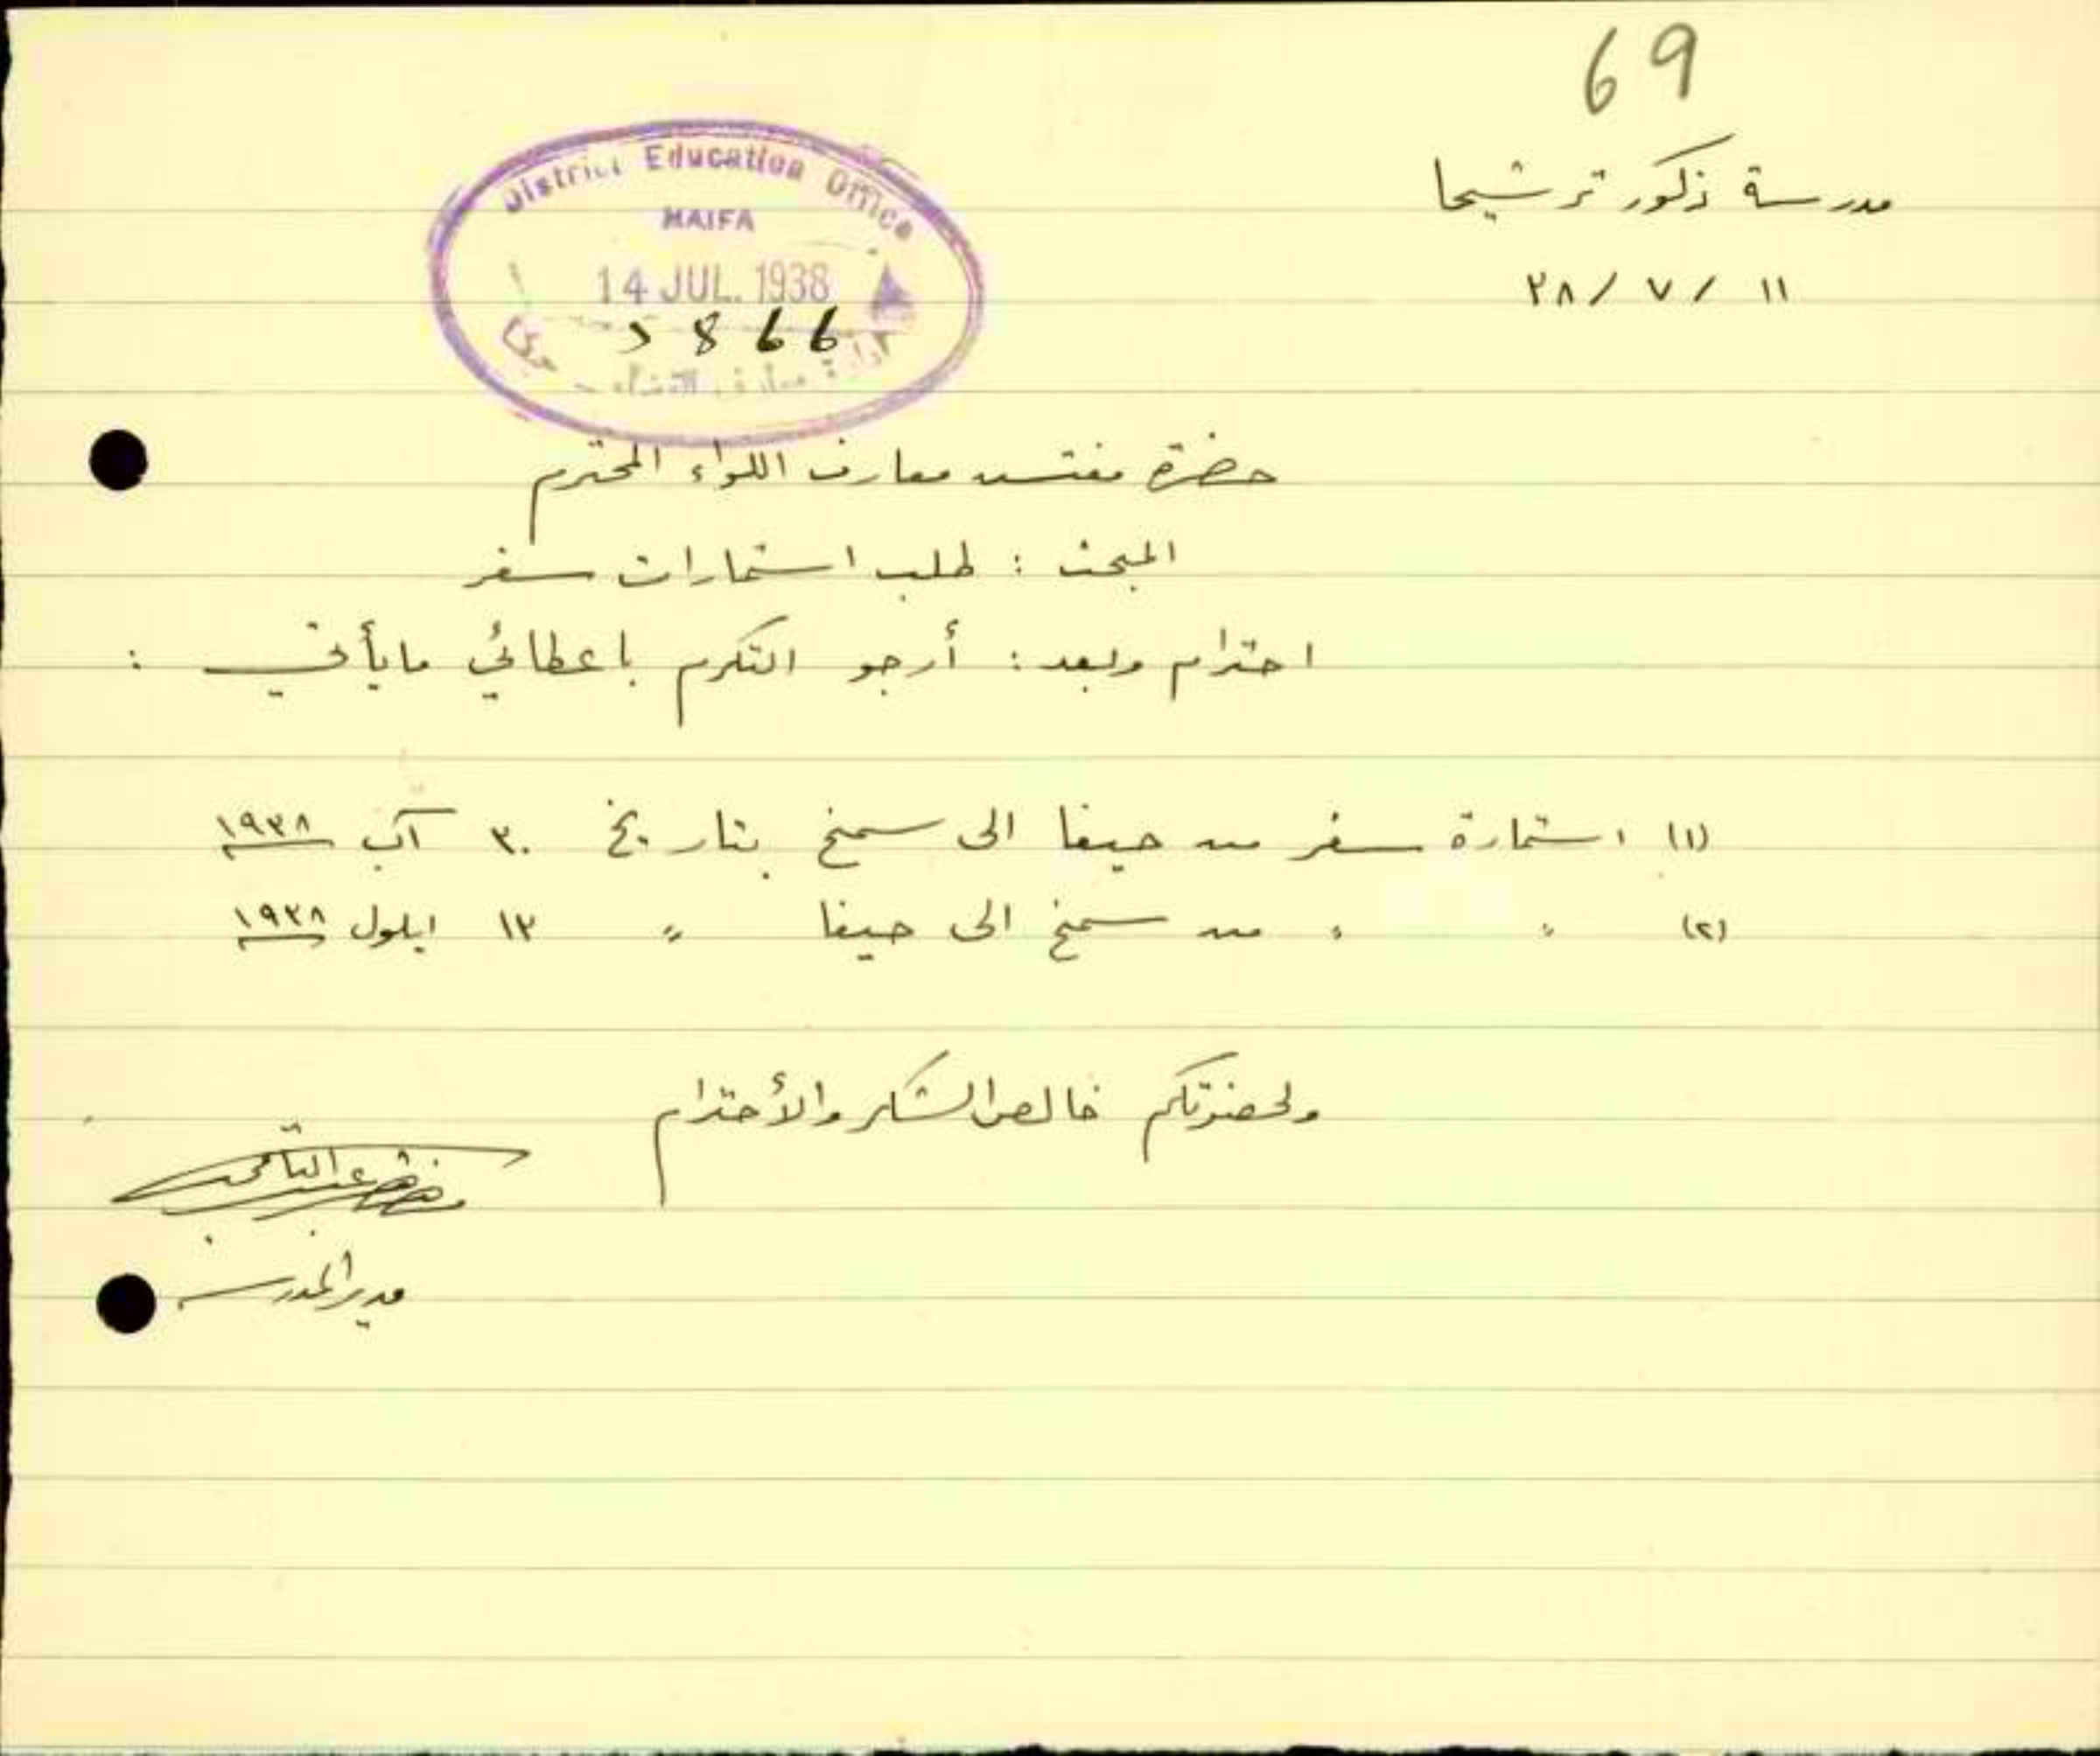 69
مدرسة ذكور ترشيحا
١١ / ٧ / ٣٨
District Education Office
HAIFA
14 JUL. 1938
5866
ادارة معارف اللواء
حضرة مفتش معارف اللواء المحترم
المبحث : طلب استمارات سفر
احترام وبعد : أرجو التكرم باعطائي ما يأتي :
(١) استمارة سفر من حيفا الى سمخ بتاريخ ٣٠ آب ١٩٣٨
(٢) " " من سمخ الى حيفا " ١٣ ايلول ١٩٣٨
ولحضرتكم خالص الشكر والأحترام
مدير المدرسة